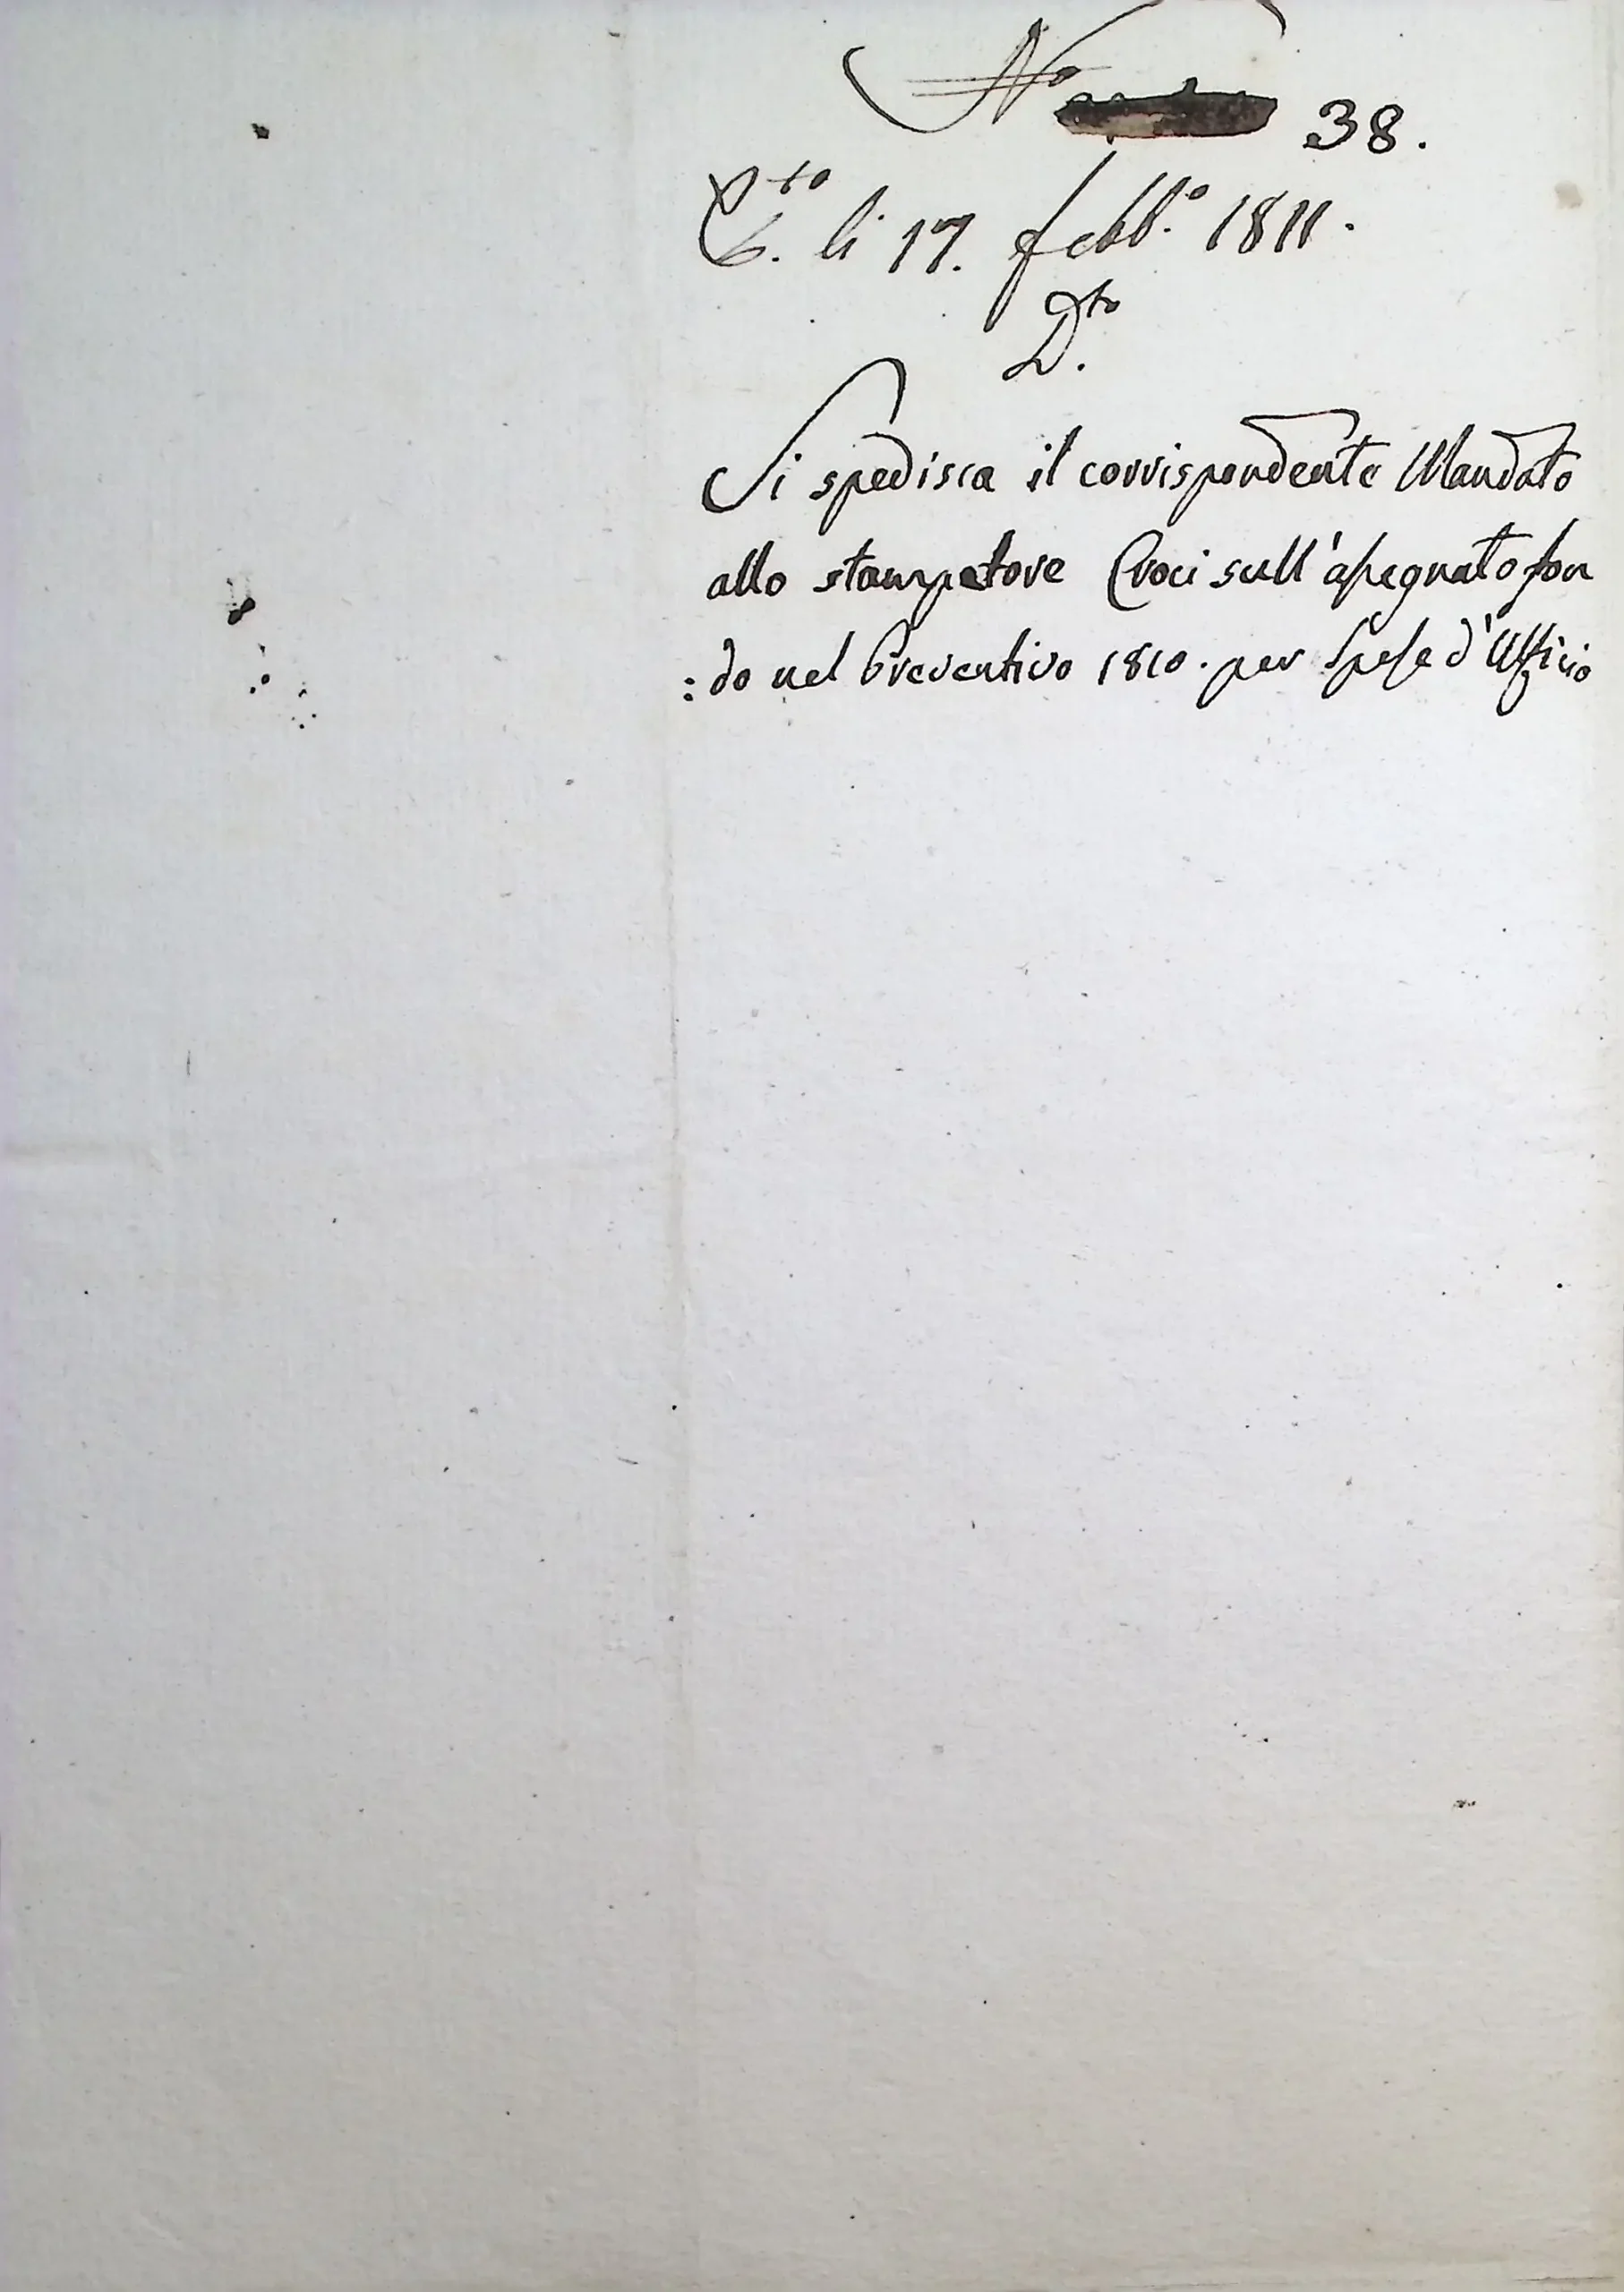 N.o 38.
E.to li 17. febb.o 1811.
D.to
Si spedisca il corrispondente Mandato
allo stampatore Croci sull'assegnato fon
:do nel Preventivo 1810. per spese d'Ufficio